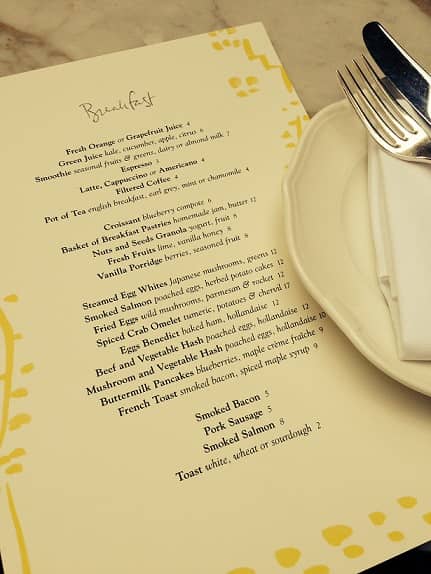 Breakfast
Fresh Orange or Grapefruit Juice 4
Green Juice kale, cucumber, apple, citrus 6
Smoothie seasonal fruits & greens, dairy or almond milk 7
Espresso 3
Latte, Cappuccino or Americano 4
Filtered Coffee 4
Pot of Tea english breakfast, earl grey, mint or chamomile 4
Croissant blueberry compote 6
Basket of Breakfast Pastries homemade jam, butter 12
Nuts and Seeds Granola yogurt, fruit 8
Fresh Fruits lime, vanilla honey 8
Vanilla Porridge berries, seasonal fruit 8
Steamed Egg Whites Japanese mushrooms, greens 12
Smoked Salmon poached eggs, herbed potato cakes 12
Fried Eggs wild mushrooms, parmesan & rocket 12
Spiced Crab Omelet tumeric, potatoes & chervil 17
Eggs Benedict baked ham, hollandaise 12
Beef and Vegetable Hash poached eggs, hollandaise 12
Mushroom and Vegetable Hash poached eggs, hollandaise 10
Buttermilk Pancakes blueberries, maple crème fraîche 9
French Toast smoked bacon, spiced maple syrup 9
Smoked Bacon 5
Pork Sausage 5
Smoked Salmon 8
Toast white, wheat or sourdough 2